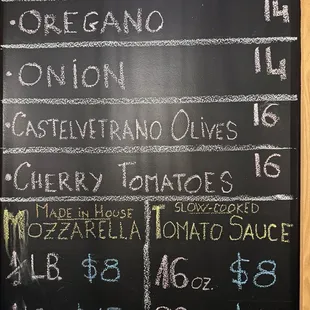 · OREGANO 14
· ONION 14
· CASTELVETRANO OLIVES 16
· CHERRY TOMATOES 16
MADE IN HOUSE
MOZZARELLA
½ LB. $8
SLOW-COOKED
TOMATO SAUCE
16 OZ. $8